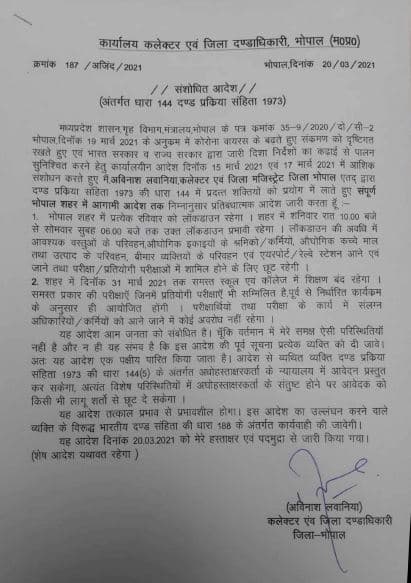 कार्यालय कलेक्टर एवं जिला दण्डाधिकारी, भोपाल (म0प्र0)
क्रमांक 187 /अजिंद/2021 भोपाल,दिनांक 20/03/2021
// संशोधित आदेश//
(अंतर्गत धारा 144 दण्ड प्रक्रिया संहिता 1973)
मध्यप्रदेश शासन,गृह विभाग,मंत्रालय,भोपाल के पत्र कमांक 35–9/2020/दो/सी–2
भोपाल,दिनांक 19 मार्च 2021 के अनुकम में कोरोना वायरस के बढ़ते हुए संकमण को दृष्टिगत
रखते हुए एवं भारत सरकार व राज्य सरकार द्वारा जारी दिशा निर्देशों का कढ़ाई से पालन
सुनिश्चित करने हेतु कार्यालयीन आदेश दिनांक 15 मार्च एवं 17 मार्च 2021 में आशिंक
संशोधन करते हुए में,अविनाश लवानिया,कलेक्टर एवं जिला मजिस्ट्रेट जिला भोपाल एतद् द्वारा
दण्ड प्रक्रिया संहिता 1973 की धारा 144 में प्रदत्त शक्तियों को प्रयोग में लाते हुए संपूर्ण
भोपाल शहर में आगामी आदेश तक निम्नानुसार प्रतिबंधात्मक आदेश जारी करता हूँ :-
1. भोपाल शहर में प्रत्येक रविवार को लॉकडाउन रहेगा । शहर में शनिवार रात 10.00 बजे
से सोमवार सुबह 06.00 बजे तक उक्त लॉकडाउन प्रभावी रहेगा । लॉकडाउन की अवधि में
आवश्यक वस्तुओं के परिवहन,औघोगिक इकाइयों के श्रमिको/कर्मियों, औघोगिक कच्चे माल
तथा उत्पाद के परिवहन, बीमार व्यक्तियों के परिवहन एवं एयरपोर्ट/रेल्वे स्टेशन आने एवं
जाने तथा परीक्षा/प्रतियोगी परीक्षाओं में शामिल होने के लिए छूट रहेगी ।
2. शहर में दिनॉक 31 मार्च 2021 तक समस्त स्कूल एवं कॉलेज में शिक्षण बंद रहेगा ।
समस्त प्रकार की परीक्षाऐं जिनमे प्रतियोगी परीक्षाऐं भी सम्मिलित है,पूर्व से निर्धारित कार्यकम
के अनुसार ही आयोजित होंगी । परीक्षार्थियों तथा परीक्षा के कार्य मे संलग्न
अधिकारियों/कर्मियों को आने जाने में कोई अवरोध नही रहेगा ।
यह आदेश आम जनता को संबोधित है। चूँकि वर्तमान में मेरे समक्ष ऐसी परिस्थितियाँ
नहीं है और न ही यह संभव है कि इस आदेश की पूर्व सूचना प्रत्येक व्यक्ति को दी जावे।
अतः यह आदेश एक पक्षीय पारित किया जाता है। आदेश से व्यथित व्यक्ति दण्ड प्रक्रिया
संहिता 1973 की धारा 144(5) के अंतर्गत अधोहस्ताक्षरकर्ता के न्यायालय में आवेदन प्रस्तुत
कर सकेगा, अत्यंत विशेष परिस्थितियों में अधोहस्ताक्षरकर्ता के संतुष्ट होने पर आवेदक को
किसी भी लागू शर्तो से छूट दे सकेगा ।
यह आदेश तत्काल प्रभाव से प्रभावशील होगा। इस आदेश का उल्लंघन करने वाले
व्यक्ति के विरूद्ध भारतीय दण्ड संहिता की धारा 188 के अंतर्गत कार्यवाही की जावेगी।
यह आदेश दिनांक 20.03.2021 को मेरे हस्ताक्षर एवं पदमुद्रा से जारी किया गया।
(शेष आदेश यथावत रहेगा )
(अविनाश लवानिया)
कलेक्टर एंव जिला दण्डाधिकारी
जिला–भोपाल